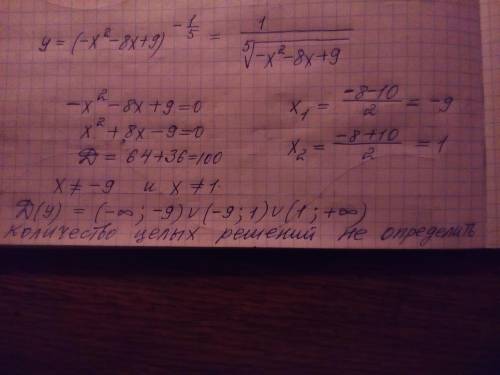 y = (-x²-8x+9)^(-1/5) = 1/⁵√(-x²-8x+9)
-x²-8x+9=0
x²+8x-9=0
D = 64+36=100
x₁ = (-8-10)/2 = -9
x₂ = (-8+10)/2 = 1
x≠-9 и x≠1
D(y) = (-∞; -9)∪(-9; 1)∪(1; +∞)
количество целых решений не определить